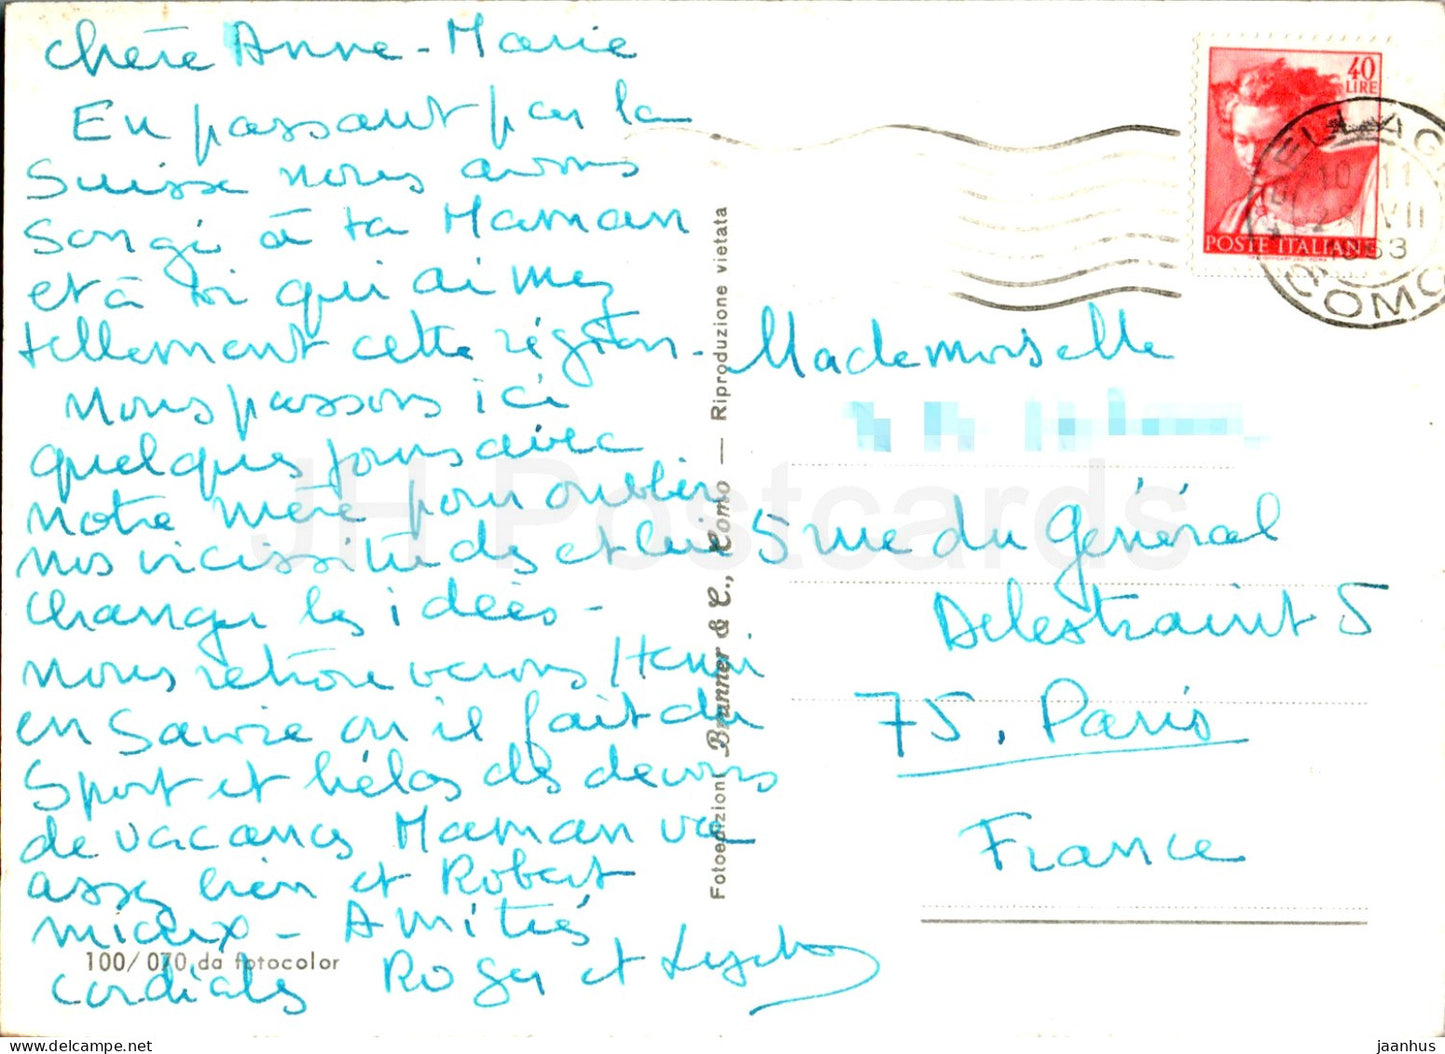 chère Anne-Marie
En passant par la
Suisse nous avons
songé à ta Maman
et à toi qui aimez
tellement cette région-
Nous passons ici
quelques jours avec
notre mère pour oublier
nos vicissitudes et lui
changer les idées -
nous retrouverons Henri
en Savoie où il fait du
sport et hélas des devoirs
de vacances Maman va
assez bien et Robert
mieux - Amitiés
cordiales Roger et
100/070 da fotocolor
Fotoedizioni Brunner & C., Como — Riproduzione vietata
40
LIRE
POSTE ITALIANE
10 11
VII
1963
COMO
Mademoiselle
5 rue du Général
Delestraint 5
75. Paris
France
JH Postcards
jaanhus